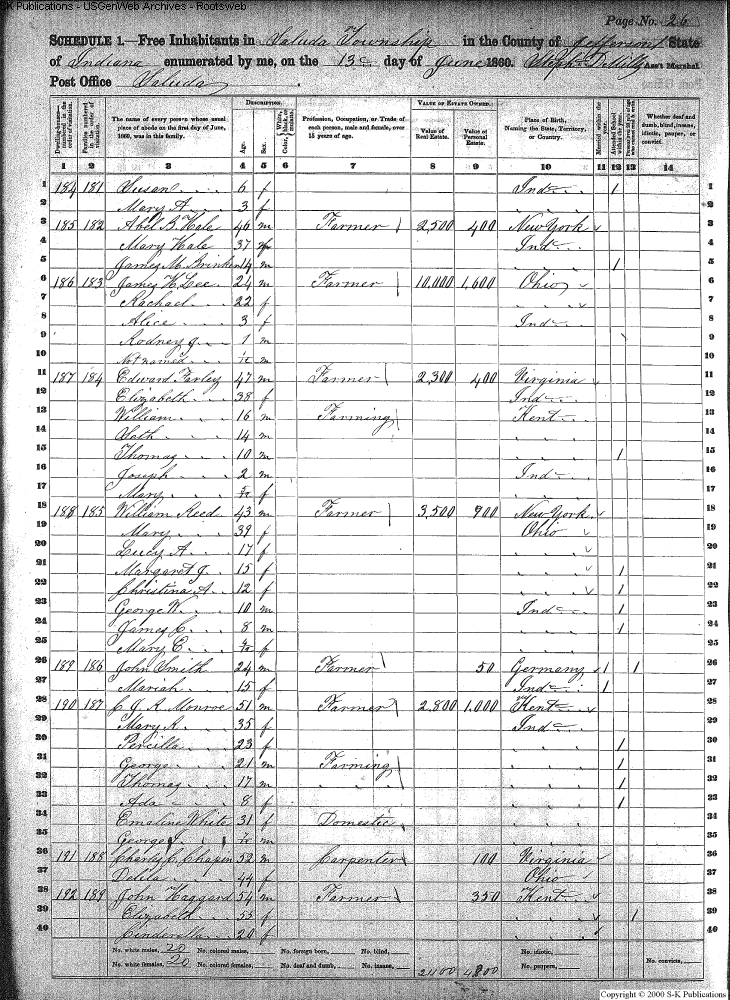 S-K Publications - USGenWeb Archives - Rootsweb
Page No. 26
SCHEDULE 1.—Free Inhabitants in Saluda Township in the County of Jefferson State
of Indiana enumerated by me, on the 13 day of June 1860. Ass't Marshal.
Post Office Saluda
Dwelling-houses—numbered in the order of visitation.
Families numbered in the order of visitation.
The name of every person whose usual place of abode on the first day of June, 1860, was in this family.
DESCRIPTION.
Age.
Sex.
Color, White, black, or mulatto.
Profession, Occupation, or Trade of each person, male and female, over 15 years of age.
VALUE OF ESTATE OWNED.
Value of Real Estate.
Value of Personal Estate.
Place of Birth, Naming the State, Territory, or Country.
Married within the year.
Attended School within the year.
Whether deaf and dumb, blind, insane, idiotic, pauper, or convict.
1 2 3 4 5 6 7 8 9 10 11 12 13 14
1 184 181 Susan 6 f Ind / 1
2 Mary A 3 f 2
3 185 182 Abel B. Hale 46 m Farmer 2,500 400 New York 3
4 Mary Hale 37 f Ind 4
5 James M. 14 m / 5
6 186 183 James H. Lee 24 m Farmer 10,000 1,600 Ohio 6
7 Rachael 22 f 7
8 Alice 3 f Ind 8
9 Rodney J 1 m 9
10 Not named m 10
11 187 184 Edward Farley 47 m Farmer 2,300 400 Virginia 11
12 Elizabeth 38 f Ind 12
13 William 16 m Farming Kent 13
14 Seth 14 m 14
15 Thomas 10 m / 15
16 Joseph 2 m Ind 16
17 Mary f 17
18 188 185 William Reed 43 m Farmer 3,500 900 New York 18
19 Mary 39 f Ohio 19
20 Lucy A 17 f 20
21 Margaret J 15 f / 21
22 Christina A 12 f / 22
23 George W. 10 m Ind / 23
24 James C. 8 m / 24
25 Mary E. f 25
26 189 186 John Smith 24 m Farmer 50 Germany / / 26
27 Mariah 15 f Ind / 27
28 190 187 Monroe 51 m Farmer 2,800 1,000 Kent 28
29 Mary A. 35 f Ind 29
30 Percilla 23 f / 30
31 George 21 m Farming / 31
32 Thomas 17 m / 32
33 Ada 8 f / 33
34 Emaline White 31 f Domestic 34
35 George m 35
36 191 188 Charles C. Chapen 52 m Carpenter 100 Virginia 36
37 Delila 44 f Ohio 37
38 192 189 John Haggard 54 m Farmer 350 Kent 38
39 Elizabeth 55 f / 39
40 Cinderella 20 f 40
No. white males, 20 No. colored males, No. foreign born, No. blind, No. idiotic,
No. white females, 20 No. colored females, No. deaf and dumb, No. insane, 4800 No. paupers, No. convicts,
Copyright © 2000 S-K Publications